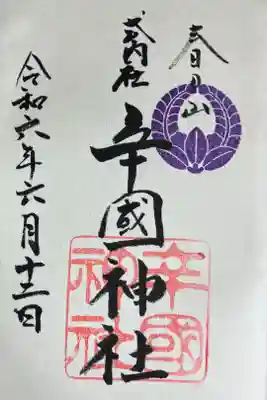 春日山
式内社
辛國神社
辛國
神社
令和六年六月十二日